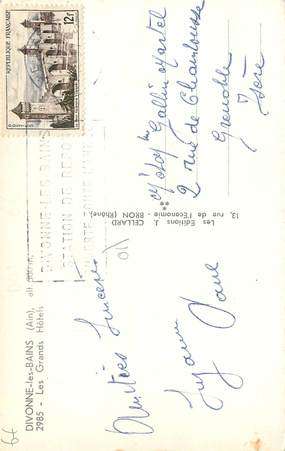 DIVONNE-les-BAINS (Ain), alt.
2985 - Les Grands Hôtels
Amitiés Sincères
Suzanne
Les Editions J. CELLARD
13, rue de l'Economie - BRON (Rhône)
RÉPUBLIQUE FRANÇAISE
12F
DIVONNE-LES-BAINS
STATION DE REPOS
Gallin Martel
2 rue de Chamrousse
Grenoble
Isère